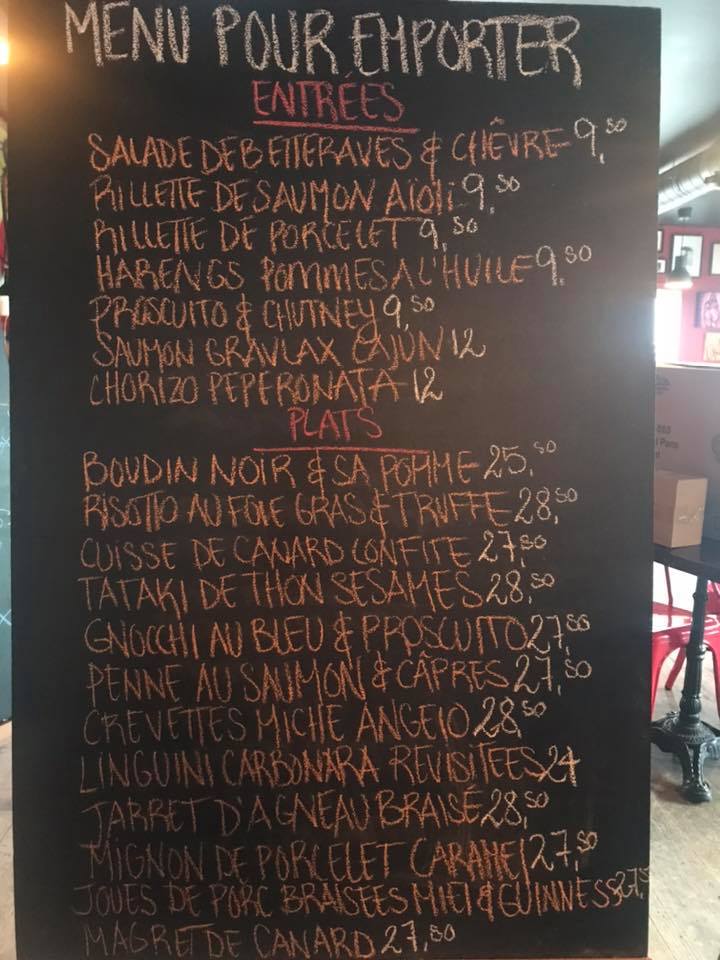 MENU POUR EMPORTER
ENTRÉES
SALADE DE BETTERAVES & CHÈVRE 9,50
RILLETTE DE SAUMON AÏOLI 9,50
RILLETTE DE PORCELET 9,50
HARENGS POMMES A L'HUILE 9,50
PROSCUITO & CHUTNEY 9,50
SAUMON GRAVLAX CAJUN 12
CHORIZO PEPERONATA 12
PLATS
BOUDIN NOIR & SA POMME 25,50
RISOTTO AU FOIE GRAS & TRUFFE 28,50
CUISSE DE CANARD CONFITE 27,50
TATAKI DE THON SESAMES 28,50
GNOCCHI AU BLEU & PROSCUITO 27,50
PENNE AU SAUMON & CÂPRES 27,50
CREVETTES MICHEL ANGELO 28,50
LINGUINI CARBONARA REVISITEES 24
JARRET D'AGNEAU BRAISÉ 28,50
MIGNON DE PORCELET CARAMEL 27,50
JOUES DE PORC BRAISEES MIEL & GUINNESS 27,5
MAGRET DE CANARD 27,50